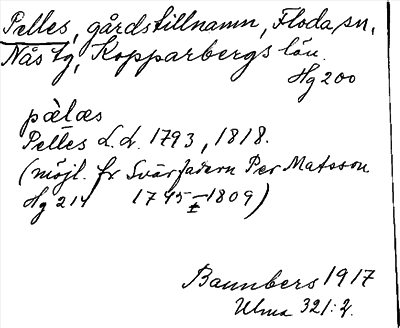 Pelles, gårdstillnamn, Floda sn,
Nås tg, Kopparbergs län.
Hg 200
pæ̀læs
Pelles L.d. 1793, 1818.
(möjl. fr Svärfadern Per Matsson
Hg 214 1745–1809)
1917
Ulma 321:2.